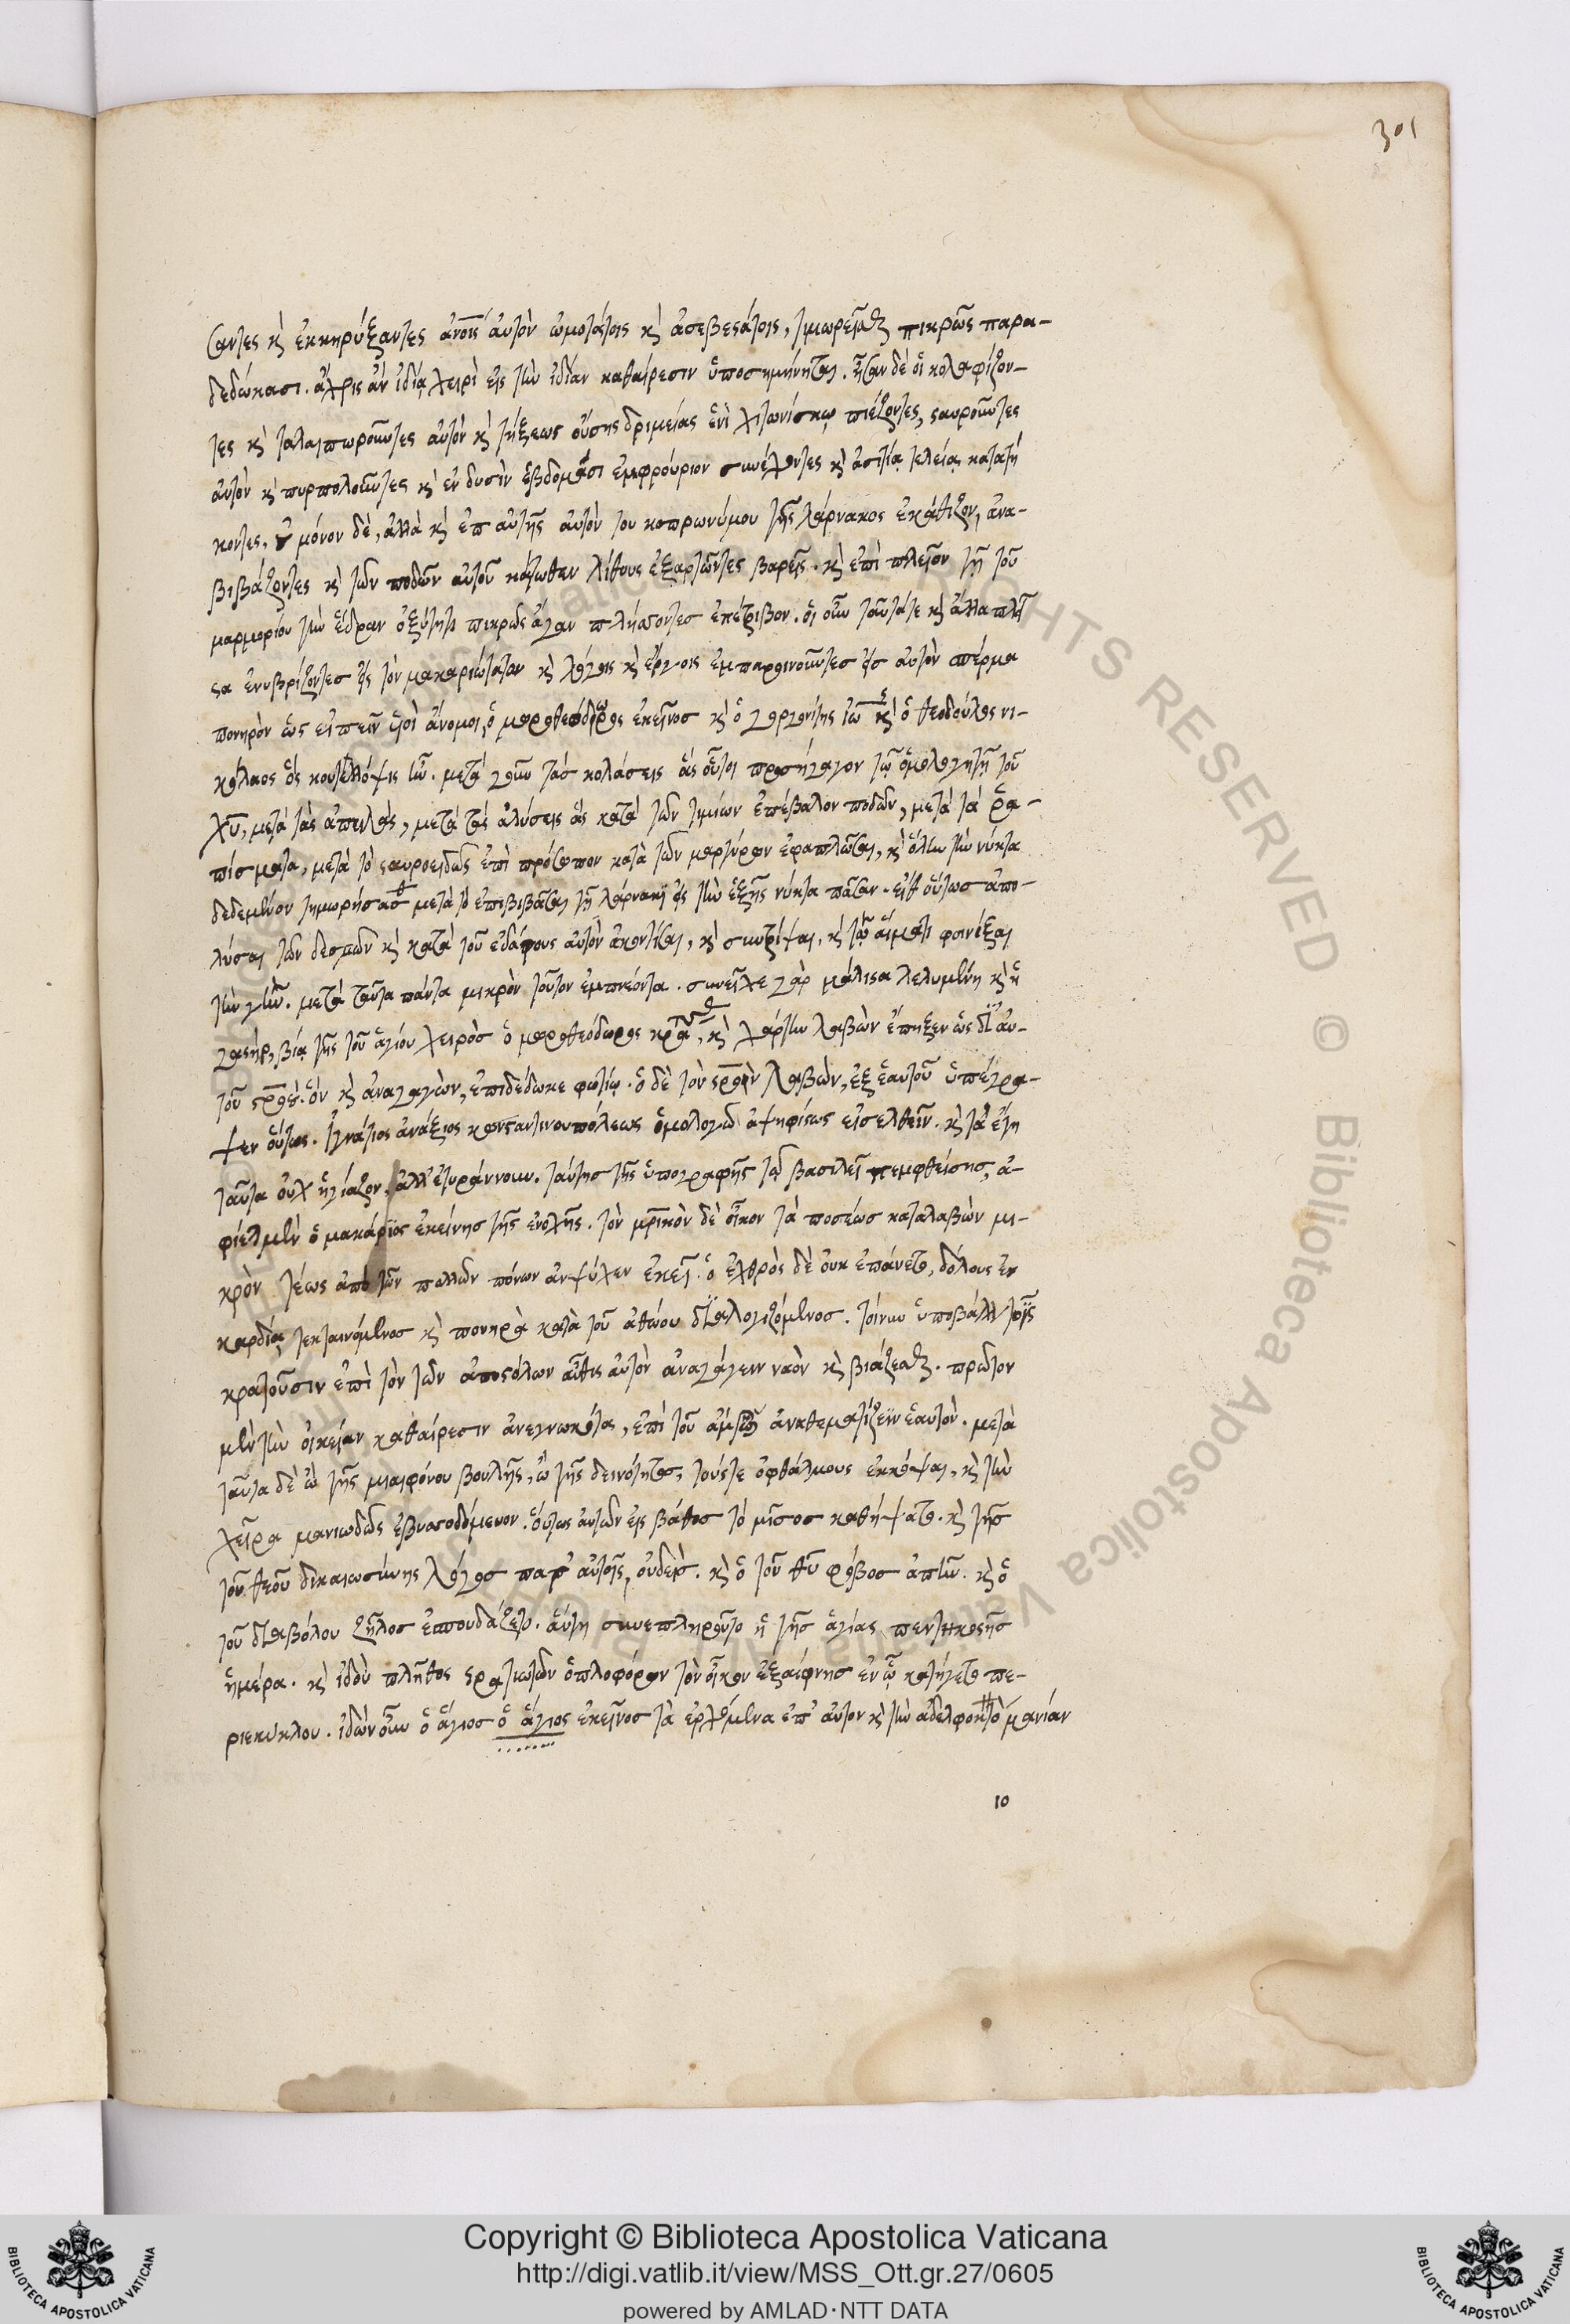 301
σαντες κ̀ ἐκκηρύξαντες ἀνοις αὐτὸν ὠμοτάτοις κ̀ ἀσεβεστάτοις, τιμωρεῖσθαι πικρῶς παρα-
δεδώκασι. ἄχρις ἂν ἰδίᾳ χειρὶ εἰς τὴν ἰδίαν καθαίρεσιν ὑποσημήνηται. ἦσαν δὲ οἱ κολαφίζον-
τες κ̀ ταλαιπωροῦντες αὐτὸν κ̀ πήξεως οὔσης δριμείας ἑνὶ χιτωνίσκῳ πιέζοντες, σταυροῦντες
αὐτὸν κ̀ πυρπολοῦντες κ̀ ἐν δυσὶν ἑβδομάσι ἐμφρούριον συνέχοντες κ̀ ἀσιτίᾳ τελείᾳ κατατή
κοντες. οὐ μόνον δὲ, ἀλλὰ κ̀ ἐπ αὐτῆς αὐτὸν του κοπρωνύμου τῆς λάρνακος ἐκάθιζον, ἀνα-
βιβάζοντες κ̀ τῶν ποδῶν αὐτοῦ κάτωθεν λίθους ἐξαρτῶντες βαρεῖς. κ̀ ἐπὶ πλεῖον τῇ τοῦ
μαρμαρίου τὴν ἕδραν ὀξύτητι πικρῶς ἄγαν πλήσσοντες ἐπέτριβον. οἱ οὖν ταῦτάτε κ̀ ἄλλα πλεῖ
στα ἐνυβρίζοντες εἰς τὸν μακαριώτατον κ̀ λόγοις κ̀ ἔργοις ἐμπαροινοῦντες εἰς αὐτὸν σπέρμα
πονηρὸν ὡς εἰπεῖν υἱοὶ ἄνομοι, ὁ μωροθεόδωρος ἐκεῖνος κ̀ ὁ γοργονίτης ἰω κ̀ ὁ θεοδοῦλος νι-
κόλαος ὃς σκουτέλλοψις ἦν. μετὰ γοῦν τὰς κολάσεις ἃς οὗτοι προσήγαγον τῷ ὁμολογητῇ τοῦ
χυ, μετὰ τὰς ἀπειλὰς, μετὰ τὰς ἁλύσεις ἃς κατὰ τῶν τιμίων ἐπέβαλον ποδῶν, μετὰ τὰ ῥα-
πίσματα, μετὰ τὸ σταυροειδῶς ἐπὶ πρόσωπον κατὰ τῶν μαρμάρων ἐφαπλῶσαι, κ̀ ὅλην τὴν νύκτα
δεδεμένον τιμωρήσασθαι μετὰ τὸ ἐπιβιβάσαι τῇ λάρνακι εἰς τὴν ἑξῆς νύκτα πᾶσαν. εἶθ οὕτως ἀπο-
λύσαι τῶν δεσμῶν κ̀ κατὰ τοῦ ἐδάφους αὐτὸν ἀκοντίσαι, κ̀ συντρίψαι, κ̀ τῷ αἵματι φοινίξαι
τὴν γῆν. μετὰ ταῦτα πάντα μικρὸν τοῦτον ἐμπνέοντα. συνεῖχε γὰρ μάλιστα λελυμένη κ̀ ἡ
γαστὴρ, βίᾳ τῆς τοῦ ἁγίου χειρὸς ὁ μωροθεόδωρος κρα, κ̀ χάρτην λαβὼν ἔπηξεν ὡς δἰ αὐ-
τοῦ στρον. ὃν κ̀ ἀναγαγὼν, ἐπιδέδωκε φωτίῳ. ὁ δὲ τὸν στρον λαβὼν, ἐξ ἑαυτοῦ ὑπέγρα-
ψεν οὕτως. ἰγνάτιος ἀνάξιος κωνσταντινουπόλεως ὁμολογῶ ἀψηφίστως εἰσελθεῖν. κ̀ τὰ ἔτη
ταῦτα οὐχ ἡγίαζον, ἀλλ ἐτυράννουν. ταύτης τῆς ὑπογραφῆς τῷ βασιλεῖ πεμφθείσης, ἀ-
φίετ μὲν ὁ μακάριος ἐκείνης τῆς ἐνοχῆς. τὸν μρικὸν δὲ οἶκον τὰ ποσέως καταλαβὼν μι-
κρὸν τέως ἀπὸ τῶν πολλῶν πόνων ἀνέψυχεν ἐκεῖ. ὁ ἐχθρὸς δὲ οὐκ ἐπάνετο, δόλους ἐν
καρδίᾳ τεκταινόμενος κ̀ πονηρὰ κατὰ τοῦ ἀθώου διαλογιζόμενος. τοίνυν ὑποβάλλ τοῖς
κρατοῦσιν ἐπὶ τὸν τῶν ἀποστόλων αὖθις αὐτὸν ἀναγάγειν ναὸν κ̀ βιάζεσθαι. πρῶτον
μὲν τὴν οἰκείαν καθαίρεσιν ἀνεγνωκότα, ἐπὶ τοῦ ἄμβωνος ἀναθεματίζειν ἑαυτὸν. μετὰ
ταῦτα δὲ ὢ τῆς μιαιφόνου βουλῆς, ὢ τῆς δεινότητος, τούςτε ὀφθάλμους ἐκκόψαι, κ̀ τὴν
χεῖρα μανιωδῶς ἐβυσσοδόμενον. οὕτως αὐτῶν εἰς βάθος τὸ μῖσος καθήψατο. κ̀ τῆς
τοῦ θεοῦ δικαιωσύνης λόγος παρ αὐτοῖς, οὐδεὶς. κ̀ ὁ τοῦ θυ φόβος ἀπῆν. κ̀ ὁ
τοῦ διαβόλου ζῆλος ἐσπουδάζετο. αὕτη συνεπληροῦτο ἡ τῆς ἁγίας πεντηκοστῆς
ἡμέρα. κ̀ ἰδοὺ πλῆθος στρατιωτῶν ὁπλοφόρων τὸν οἶκον ἐξαίφνης ἐν ᾧ κατήγετο πε-
ριεκύκλου. ἰδὼν οὖν ὁ ἅγιος ὁ ἅγιος ἐκεῖνος τὰ ἐρχόμενα ἐπ αὐτὸν κ̀ τὴν ἀδελφοκτὸ μανίαν
10
Copyright © Biblioteca Apostolica Vaticana
http://digi.vatlib.it/view/MSS_Ott.gr.27/0605
powered by AMLAD·NTT DATA
BIBLIOTECA APOSTOLICA VATICANA
BIBLIOTECA APOSTOLICA VATICANA